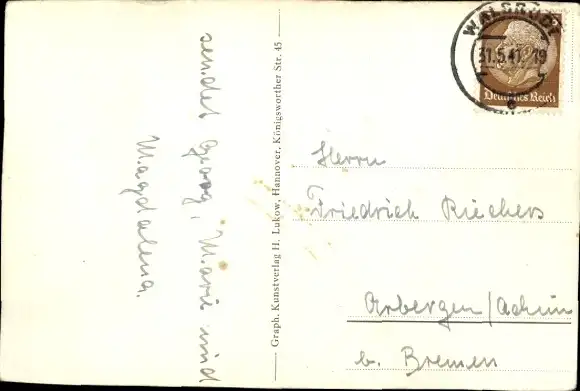 sendet Georg, Marie und
Magdalena.
Graph. Kunstverlag H. Lukow, Hannover, Königsworther Str. 45
WALSRODE
31.5.41.-19
Deutsches Reich
Herrn
Friedrich Riechers
Arbergen/Achim
b. Bremen